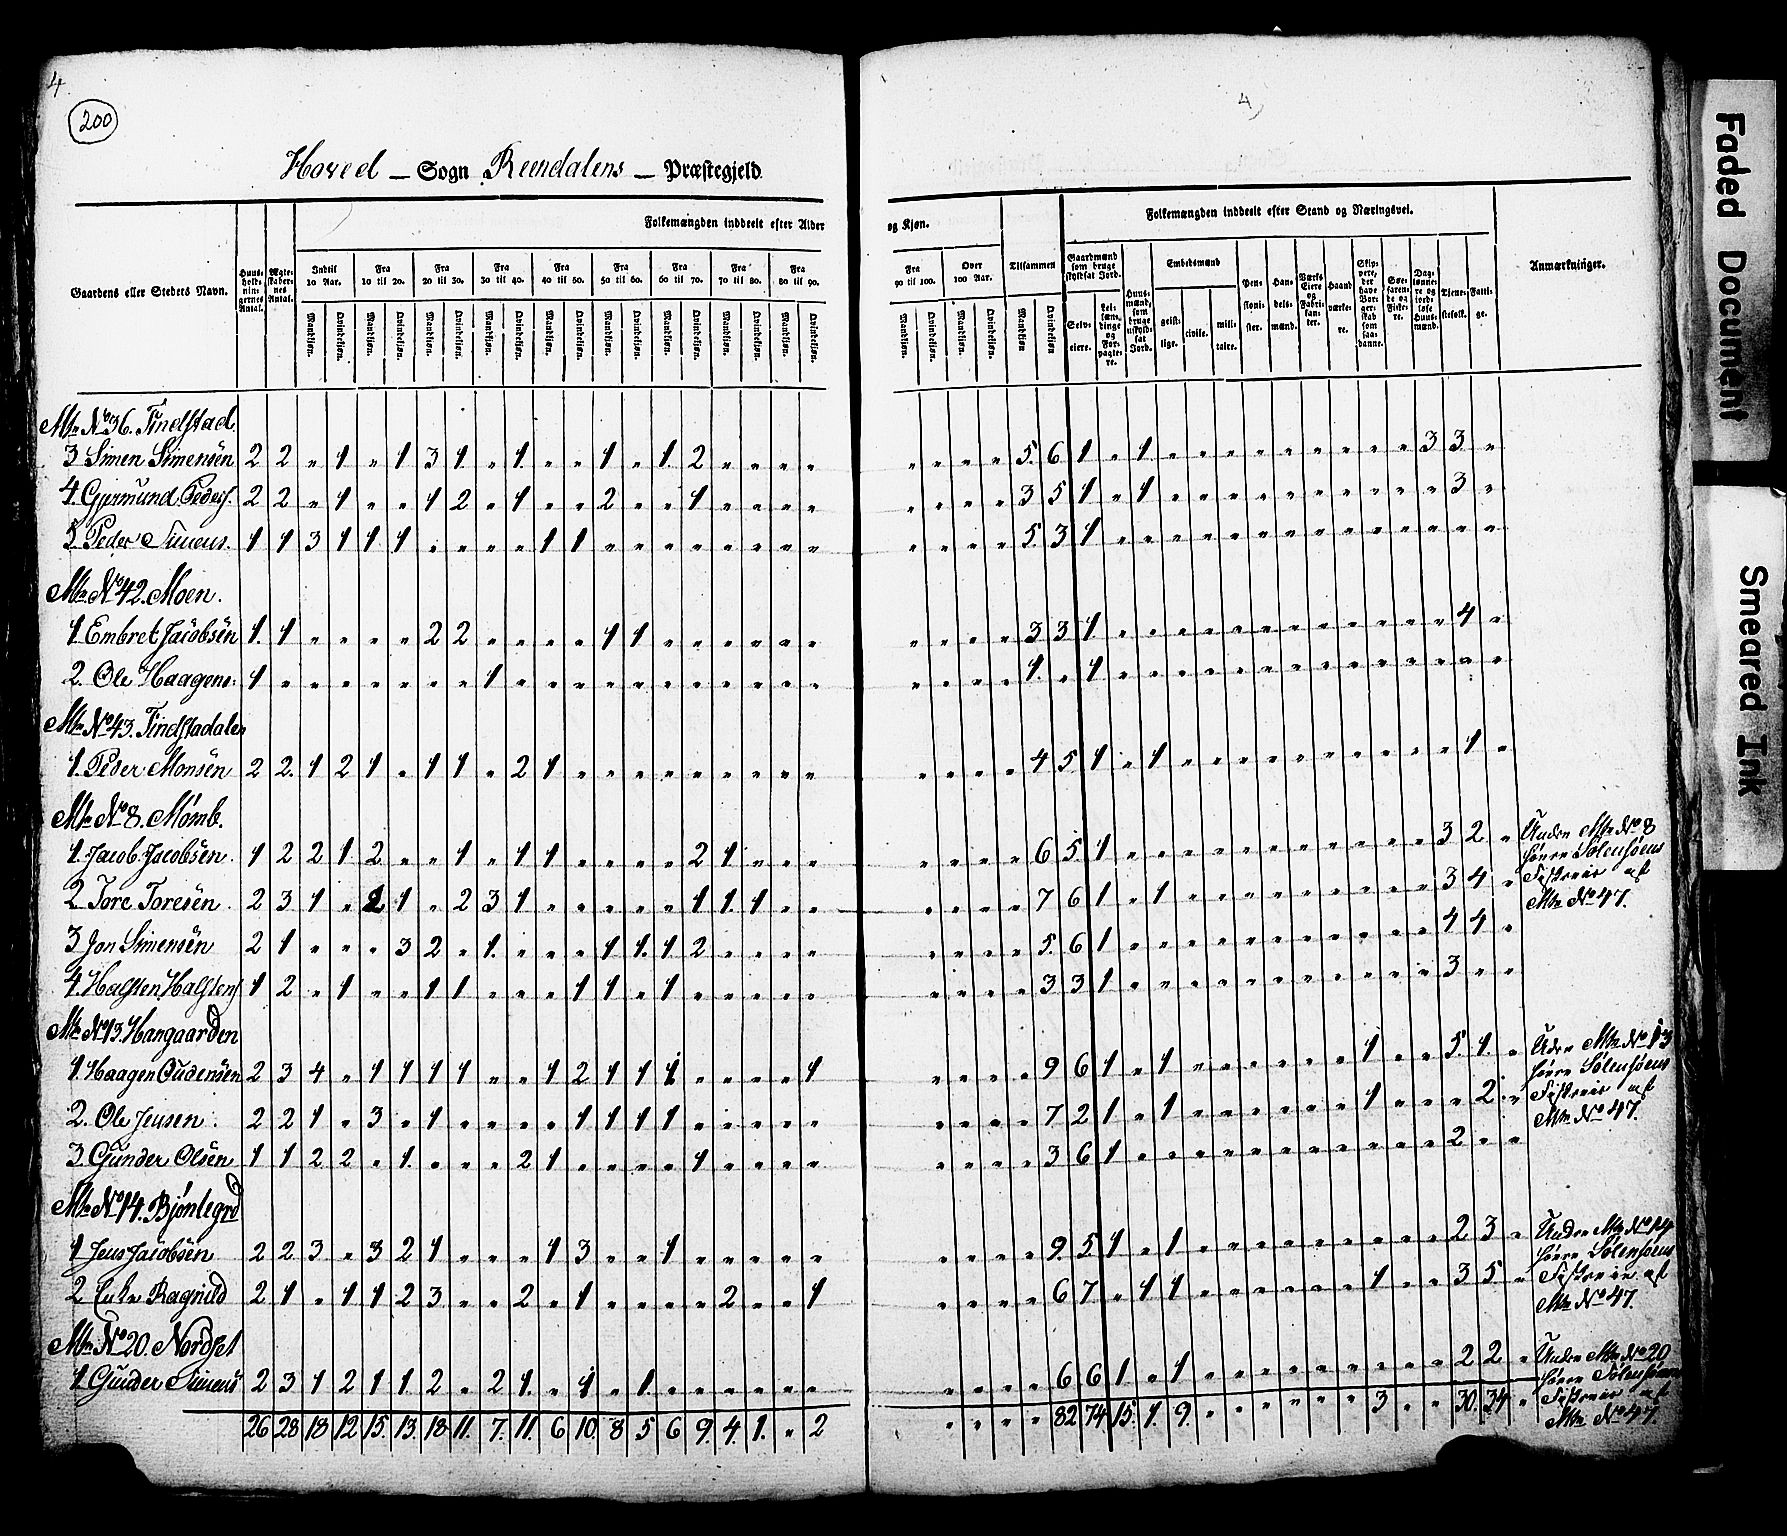 4
200
4
Hoved – Sogn Reendalens – Præstegjeld.
Folkemængden inddeelt efter Alder og Kjøn.
Folkemængden inddeelt efter Stand og Næringsvei.
Gaardens eller Stedets Navn.
Huusholdningernes Antal.
Ægteskabernes Antal.
Indtil 10 Aar.
Fra 10 til 20.
Fra 20 til 30.
Fra 30 til 40.
Fra 40 til 50.
Fra 50 til 60.
Fra 60 til 70.
Fra 70 til 80.
Fra 80 til 90.
Fra 90 til 100.
Over 100 Aar.
Tilsammen
Mandkjøn. Qvindekjøn.
Gaardmænd som bruge skyldsat Jord.
Selveiere.
Leilændinge og Forpagtere.
Huusmænd, som bruge uskyldsat Jord.
Embedsmænd
geistlige.
civile.
militaire.
Pensionister.
Handelsmænd.
Værkseiere og Fabrikanter.
Haandværkere.
Skippere, der have Borgerskab som saadanne.
Søefarende og Fiskere.
Daglønnere og jordløse Huusmænd.
Tjenestefolk.
Fattige.
Anmærkninger.
Mtr. No 36. Tindstad.
3 Simen Simensen 2 2 „ 1 „ 1 3 1. „ 1. „ „ 1 „ 1. 2 „ „ „ „ „ „ „ „ 5. 6 1 „ 1 „ „ „ „ „ „ „ „ „ 3 3. „
4. Gjermund Peders. 2 2 „ 1 „ „ 1 2 „ 1 „ „ 2 „ „ 1 „ „ „ „ „ „ „ „ 3 5 1 „ 1 „ „ „ „ „ „ „ „ „ „ 3 „
5. Peder Simens. 1 1 3 1 1 1 „ „ „ „ 1 1 „ „ „ „ „ „ „ „ „ „ „ „ 5. 3 1 „ „ „ „ „ „ „ „ „ „ „ „ „ „
Mtr. No 42. Moen.
1. Embret Jacobsen 1. 1 „ „ „ „ 2 2 „ „ „ „ 1 1 „ „ „ „ „ „ „ „ „ „ 3 3 1. „ „ „ „ „ „ „ „ „ „ „ „ 4 „
2. Ole Haagens. 1 „ „ „ „ „ „ „ 1 „ „ „ „ „ „ „ „ „ „ „ „ „ „ „ 1. „ 1 „ „ „ „ „ „ „ „ „ „ „ „ „ „
Mtr. No 43. Tindstadalen
1. Peder Monsen 2 2. 1 2 1 „ 1 1 „ 2 1 „ „ „ „ „ „ „ „ „ „ „ „ „ 4 5 1 „ 1 „ „ „ „ „ „ „ „ „ „ 1 „
Mtr. No 8. Mømb.
1. Jacob Jacobsen. 1 2 2 1 2 „ „ 1 „ 1 1 „ „ „ „ 2 1 „ „ „ „ „ „ „ 6 5 1 „ „ „ „ „ „ „ „ „ „ „ 3 2 „
Under Mtr. No 8
hører Sølensøens
Fiskerie af
Mtr. No 47.
2. Tore Toresen. 2 3 1 „ 2 1 „ 2 3 1 „ „ „ „ „ 1 1. 1 „ „ „ „ „ „ 7 6 1 „ 1 „ „ „ „ „ „ „ „ „ 3 4 „
3 Jon Simensen 2 1 „ „ „ 3 2 „ 1. „ „ „ 1 1. 1 2 „ „ „ „ „ „ „ „ 5. 6 1 „ „ „ „ „ „ „ „ „ „ „ 4 4 „
4. Halsten Halstens 1 2 „ 1 „ „ 1 1 „ „ „ 1 1 „ 1 „ „ „ „ „ „ „ „ „ 3 3 1 „ „ „ „ „ „ „ „ „ „ „ 3 „ „
Mtr. No 13. Hangaarden
1. Haagen Oudensen 2 3 4 „ 1 1 1 1 „ „ 1 2 1 1 1 „ „ „ „ 1 „ „ „ „ 9 6 1 „ 1 „ „ „ „ „ „ 1 „ „ 5. 1. „
Under Mtr. No 13
hører Sølensøens
Fiskerie af
Mtr. No 47.
2. Ole Jensen. 2 2 1 „ 3 „ 1 „ „ „ „ 1 1 1 1 „ „ „ „ „ „ „ „ „ 7 2 1 „ 1 „ „ „ „ „ „ 1 „ „ „ 2 „
3. Gunder Olsen 1 1 2 2 „ 1. „ „ „ 2 1 „ „ „ „ 1 „ „ „ „ „ „ „ „ 3 6 1 „ „ „ „ „ „ „ „ „ „ „ 2 „ „
Mtr. No 14. Bjønlegrd
1 Jens Jacobsen 2 2 3 „ 3 2 1 „ „ „ 1 3 „ „ 1 „ „ „ „ „ „ „ „ „ 9. 5 1 „ 1 „ „ „ „ „ „ „ „ „ 2 3 „
Under Mtr. No 14
hører Sølensøens
Fiskerie af
Mtr. No 47.
2 Enke Ragnild 2 1 „ 1 1 2 3 „ „ 2 „ 1 „ „ „ „ 2 „ „ 1 „ „ „ „ 6 7 „ 1 1 „ „ „ „ „ „ 1 „ „ 3 5 „
Mtr. No 20. Nordset
1. Gunder Simens 2 3 1 2 1 1. 2 „ 2 1. „ 1 „ 1. „ „ „ „ „ „ „ „ „ „ 6 6 1 „ 1 „ „ „ „ „ „ „ „ „ 2 2 „
Under Mtr. No 20
hører Sølensøens
Fiskerie af
Mtr. No 47.
26 28 18 12 15. 13. 18 11. 7. 11. 6 10. 8 5. 6 9. 4. 1. „ 2 „ „ „ „ 82 74 15. 1. 9. „ „ „ „ „ „ 3 „ „ 30. 34 „
Faded Document
Smeared Ink